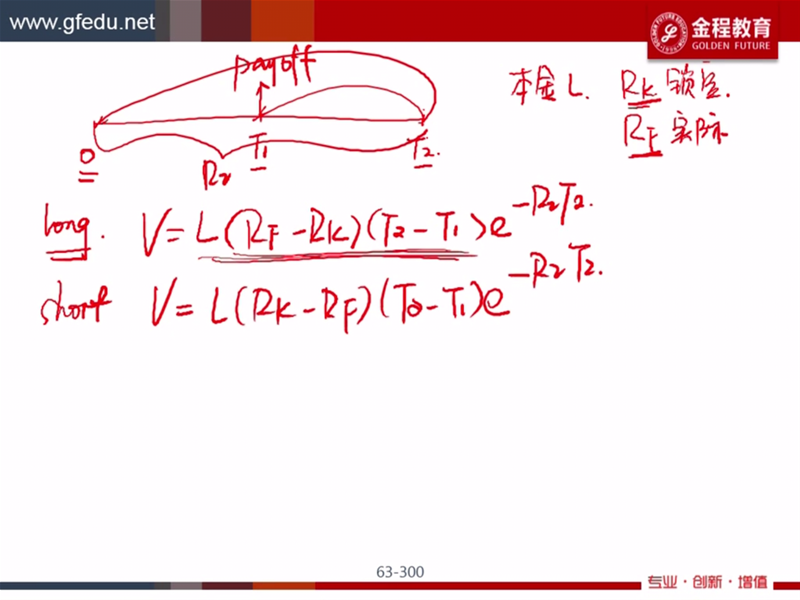 www.gfedu.net
金程教育
GOLDEN FUTURE
payoff
本金L. RK 锁定.
RF 实际
0 T1 T2.
R2
long. V=L(RF-RK)(T2-T1)e^-R2T2.
short V=L(RK-RF)(T2-T1)e^-R2T2.
63-300
专业·创新·增值